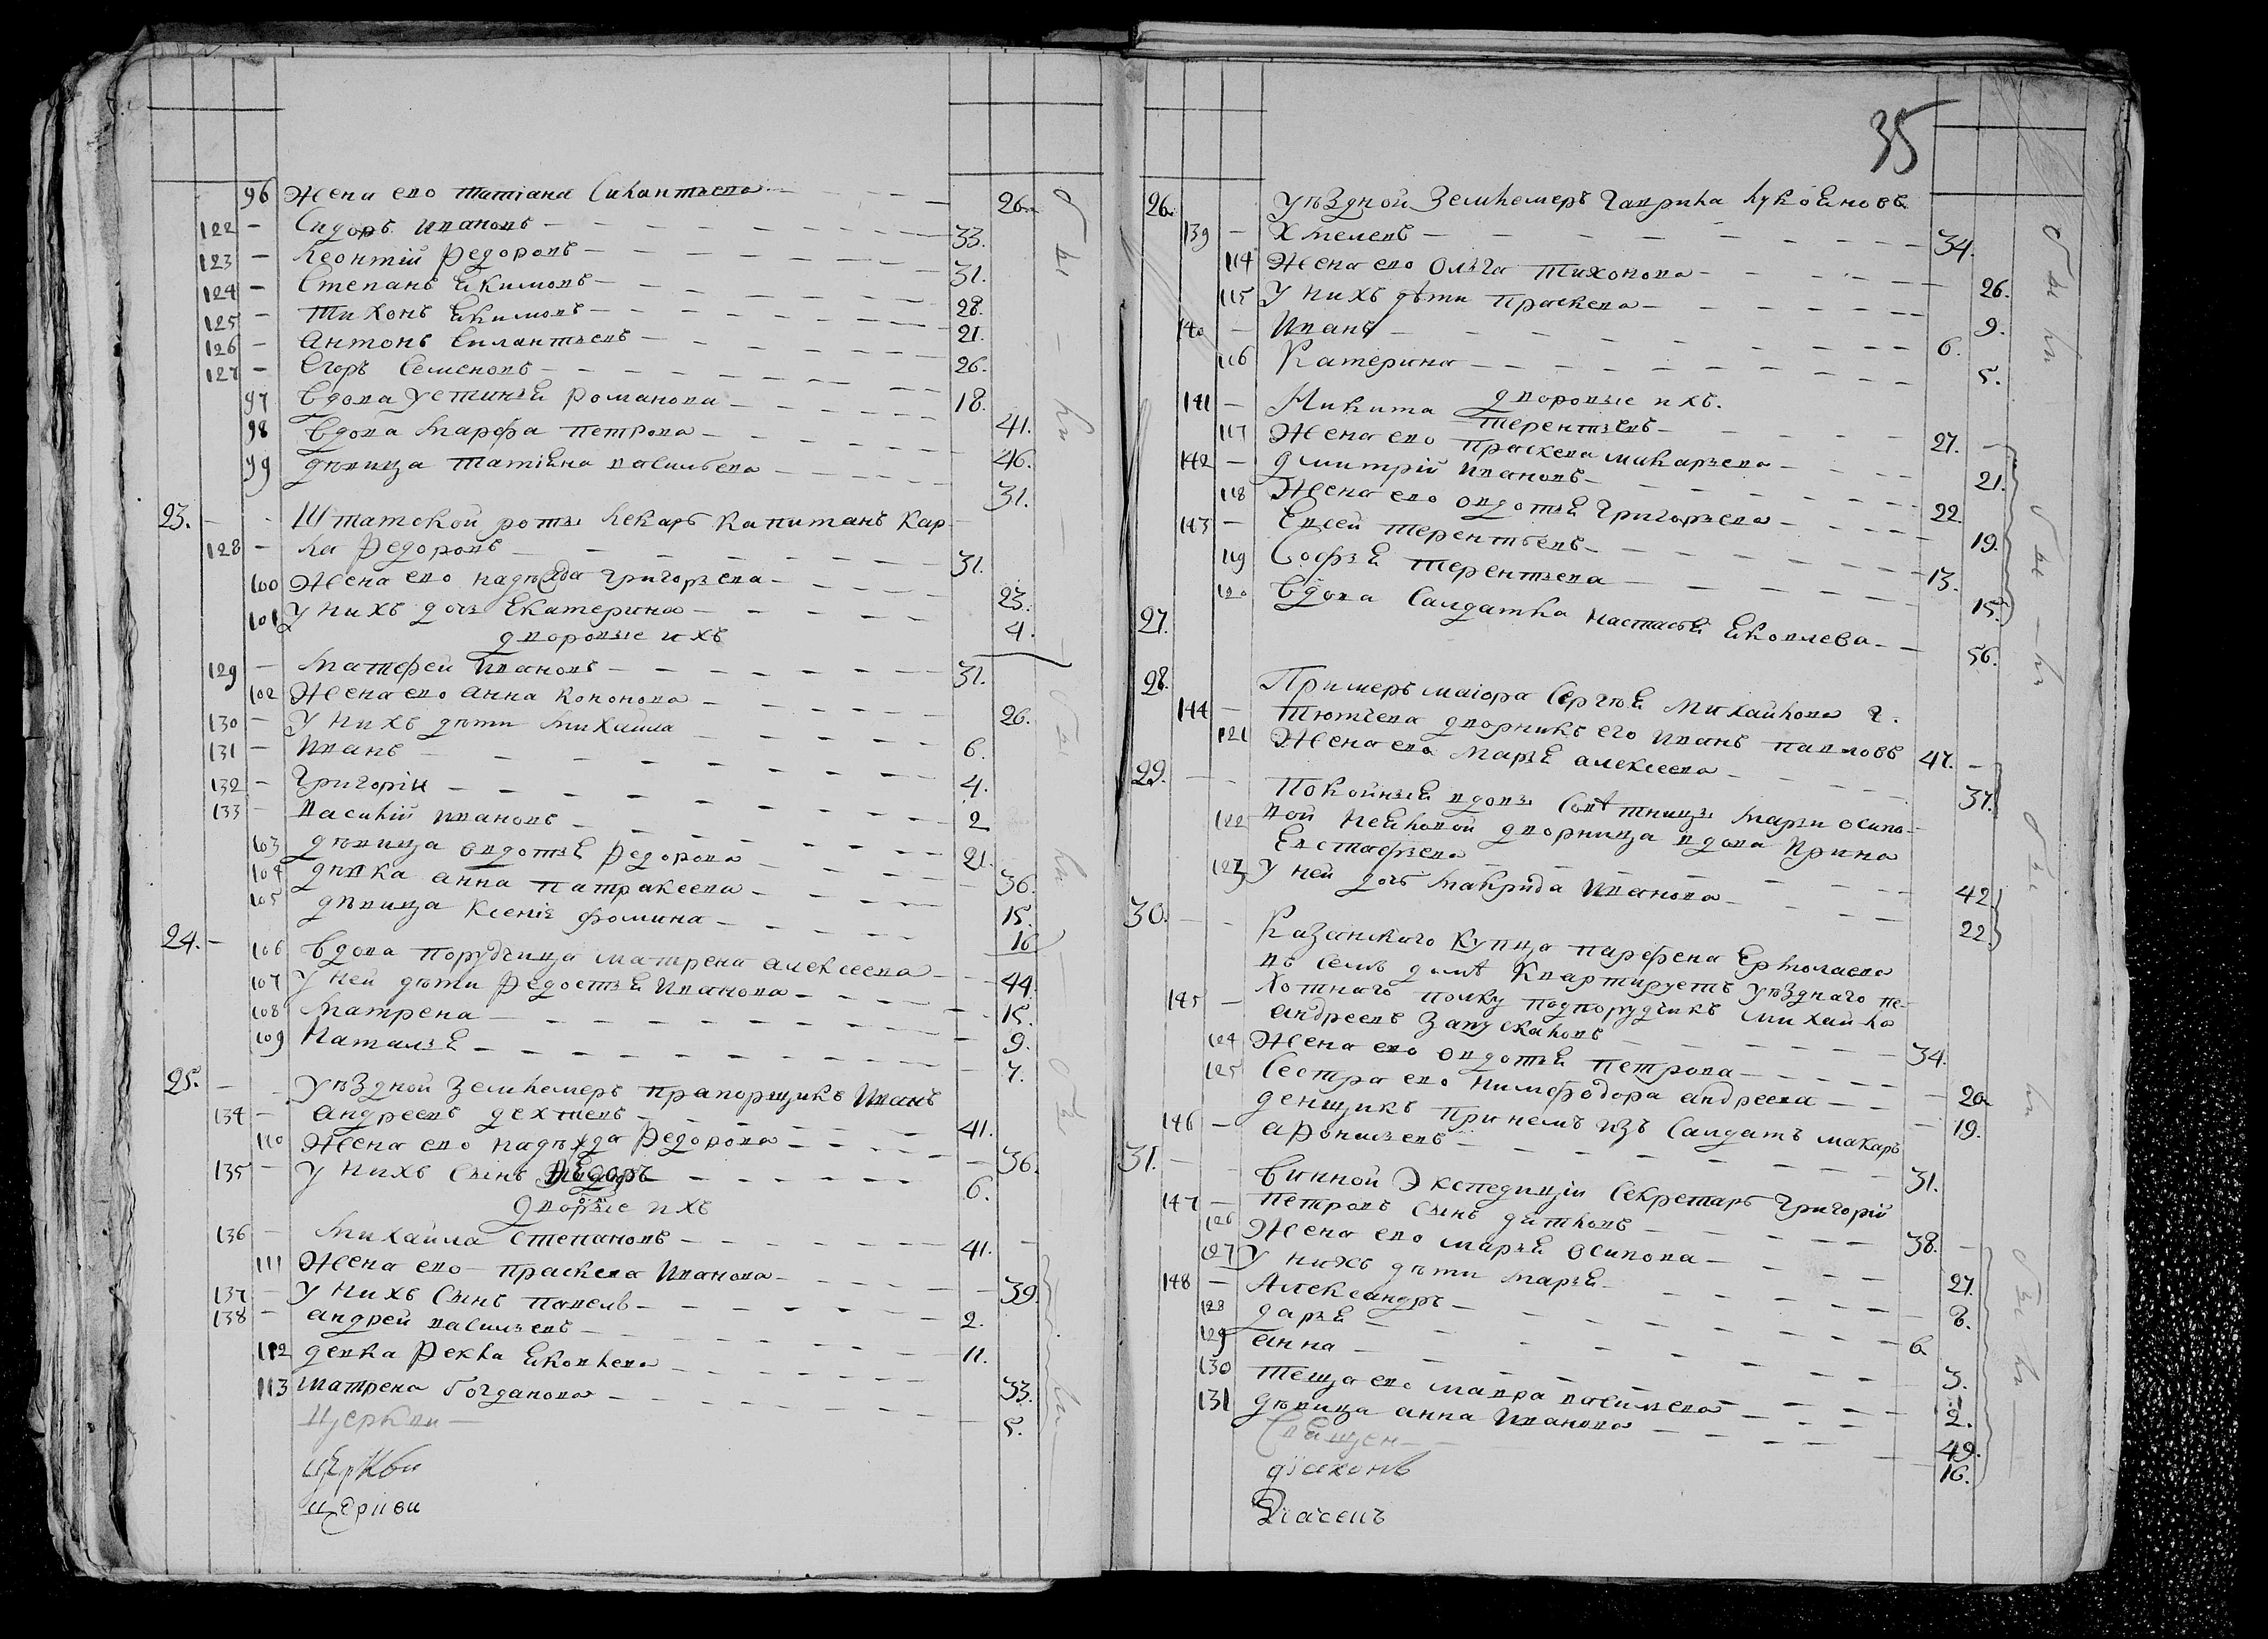 96 Жена ево татіана Силантьева 26
122 – Сидоръ ивановъ 33.
123 – Леонтій Федоровъ 31.
124 – Степанъ Екимовъ 28.
125 – тихонъ Екимовъ 21.
126 – антонъ Силантьевъ 26.
127 – Егоръ Семеновъ 18.
97 вдова устинья романова 41.
98 вдова марфа петрова 46.
99 девица татіяна васильева 31.
23. Штатской роты Лекарь Капитанъ Кар
128 – ла Федоровъ 31.
100 Жена ево надежда григорьева 23.
101 у нихъ дочь Екатерина 4.
дворовые ихъ
129 – матфеи ивановъ 31.
102 Жена ево анна кононова 26.
130 – у нихъ дѣти михаила 6.
131 – иванъ 4.
132 – григоріи 2
133 – василій ивановъ 21.
103 дѣвица овдотья Федорова 36.
104 дѣвка анна патракеева 15.
105 дѣвица ксенія фомина 16
24. 106 вдова порутчица матрена алексеева 44.
107 у ней дѣти Федостья иванова 15.
108 матрена 9.
109 наталья 7.
25. уѣздной землемеръ прапорщикъ иванъ
134 – андреевъ дехтевъ 41.
110 Жена ево надѣжда Федорова 36.
135 – у нихъ сынъ 6.
дворовые ихъ
136 – михаила степановъ 41.
111 Жена ево праскева иванова 39.
137 – у нихъ сынъ павелъ 2.
138 – андрей васильевъ 11.
112 девка Фекла яковлева 33.
113 матрена богданова 5.
церкви
церкви
церкви
35
26. уѣздной землемеръ гаврила лукояновъ
139 – хмелевъ 34.
114 Жена ево ольга тихонова 26.
115 у нихъ дѣти праскева 9.
140 – иванъ 6.
116 Катерина 5.
дворовые ихъ.
141 – Никита терентьевъ 27.
117 Жена ево праскева макарьева 21.
142 – дмитрій ивановъ 22
118 Жена ево овдотья григорьева 19.
143 – Евсей терентьевъ 13.
119 Софья терентьева 15.
27. 120 вдова салдатка настасья яковлева 56.
28. Примеръ маіора Сергѣя михайлова г.
144 – тютчева дворникъ его иванъ павловъ 47.
121 Жена ево марья алексеева 37.
29. Покойныя вдовы мари осипо-
122 вой дворница вдова ирина
Евстафьева 42.
123 у ней дочь иванова 22.
30. Казанскаго купца парфена Ермолаева
въ семъ домѣ квартируетъ уѣзднаго пе-
хотнаго полку подпорудчикъ михайло
145 – андреевъ 34.
124 Жена ево овдотья петрова 20
125 Сестра ево нимфодора андреева 19.
денщикъ при немъ изъ салдатъ макаръ
146 – 31.
31. винной Экспедиціи Секретарь григорій
147 – петровъ сынъ дятловъ 38.
126 Жена ево марья осипова 27.
127 у нихъ дѣти марья 8.
148 – Александръ 6
128 дарья 3.
129 анна 2.
130 теща ево мавра васильева 49.
131 дѣвица анна иванова 16.
Священ
діаконъ